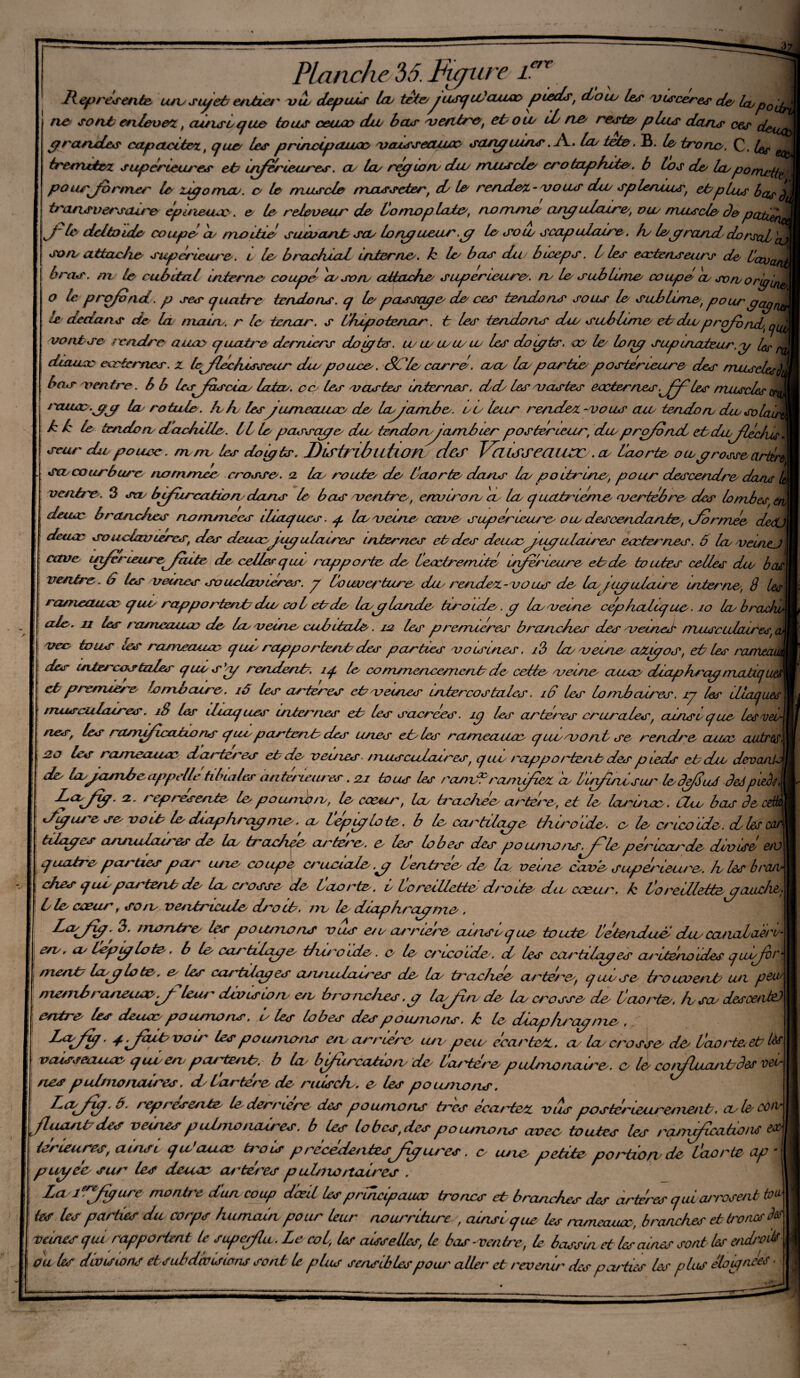 Planche 35. Figure 1.ere
Représente un sujet entier vû depuis la tête jusqu'aux pieds, d'ou les viscères de la poitri
ne sont enlevez, ainsi que tous ceux du bas ventre, et ou il ne reste plus dans ces deux
grandes capacitez, que les principaux vaisseaux sanguins. A. la tête. B. le tronc. C. les ex
tremitez supérieures et inférieures. a la région du muscle crotaphite. b l'os de la pomette
pour former le zigoma. c le muscle masseter, d le rendez-vous du splenius, et plus bas du
transversaire épineux. e le releveur de l'omoplate, nommé angulaire, ou muscle de patience
f le deltoïde coupé à moitié suivant sa longueur. g le sou scapulaire. h le grand dorsal à
son attache supérieure. i le brachial interne. k le bas du biceps. l les extenseurs de l'avant
bras. m le cubital interne coupé à son attache supérieure. n le sublime coupé à son origine.
o le profond. p ses quatre tendons. q le passage de ces tendons sous le sublime, pour gagner
le dedans de la main. r le tenar. s l'hipotenar. t les tendons du sublime et du profond, qui
vont se rendre aux quatre derniers doigts. u u u u u les doigts. x le long supinateur. y les ra
diaux externes. z le fléchisseur du pouce. &. le carré. a a la partie postérieure des muscles du
bas ventre. b b les fascia lata. c c les vastes internes. d d les vastes externes. ff les muscles
raux. gg la rotule. h h les jumeaux de la jambe. i i leur rendez-vous au tendon du solaire
k k le tendon d'achille. l l le passage du tendon jambier postérieur, du profond et du fléchis-
seur du pouce. m m les doigts. Distribution des Vaisseaux. a L'aorte ou grosse artère,
sa courbure nommée crosse. 2 la route de l'aorte dans la poitrine, pour descendre dans le
ventre. 3 sa bifurcation dans le bas ventre, environ à la quatrième vertèbre des lombes, en
deux branches nommées iliaques. 4 la veine cave supérieure ou descendante, formée des
deux souclavières, des deux jugulaires internes et des deux jugulaires externes. 5 la veine
cave inférieure faite de celles qui rapporte de l'extremité inférieure et de toutes celles du bas
ventre. 6 les veines souclavières. 7 l'ouverture du rendez-vous de la jugulaire interne, 8 les
rameaux qui rapportent du col et de la glande tiroïde. 9 la veine céphalique. 10 la brachi
ale. 11 les rameaux de la veine cubitale. 12 les premières branches des veines musculaires, a
vec tous les rameaux qui rapportent des parties voisines. 13 la veine azigos, et les rameaux
des intercostales qui s'y rendent. 14 le commencement de cette veine aux diaphragmatiques
et première lombaire. 15 les artères et veines intercostales. 16 les lombaires. 17 les iliaques
musculaires. 18 les iliaques internes et les sacrées. 19 les artères crurales, ainsi que les vei-
nes, les ramifications qui partent des unes et les rameaux qui vont se rendre aux autres.
20 les rameaux d'artères et de veines musculaires, qui rapportent des pieds et du devant
de la jambe appellé tibiales antérieures. 21 tous les ramx ramifiez à l'infini sur le dessus des pieds.
La fig. 2. représente le poumon, le coeur, la trachée artère, et le larinx. Au bas de cette
figure se voit le diaphragme. a l'épiglote. b le cartilage thiroïde. c le cricoïde. d les car
tilages annulaires de la trachée artère. e les lobes des poumons. f le péricarde divisé en
quatre parties par une coupe cruciale. g l'entrée de la veine cave supérieure. h les bran-
ches qui partent de la crosse de l'aorte. i l'oreillette droite du coeur. k l'oreillette gauche,
l le coeur, son ventricule droit. m le diaphragme.
La fig. 3. montre les poumons vûs en arrière ainsi que toute l'étendue du canal aëri-
en. a l'épiglote. b le cartilage thiroïde. c le cricoïde. d les cartilages aritenoïdes qui for-
ment la glote. e les cartilages annulaires de la trachée artère, qui se trouvent un peu
membraneux. f leur division en bronches. g la fin de la crosse de l'aorte. h sa descente
entre les deux poumons. i les lobes des poumons. k le diaphragme.
La fig. 4. fait voir les poumons en arrière un peu écartez. a la crosse de l'aorte et les
vaisseaux qui en partent. b la bifurcation de l'artère pulmonaire. c le confluant des vei-
nes pulmonaires. d l'artère de ruisch. e les poumons.
La fig. 5. représente le derrière des poumons très écartez vûs postérieurement. a le con-
fluant des veines pulmonaires. b les lobes, des poumons avec toutes les ramifications ex-
térieures, ainsi qu'aux trois précédentes figures. c une petite portion de l'aorte ap-
puyée sur les deux artères pulmonaires.
La 1.ere figure montre d'un coup d'œil les principaux troncs et branches des artères qui arrosent tou-
tes les parties du corps humain pour leur nourriture, ainsi que les rameaux, branches et troncs des
veines qui rapportent le superflu. Le col, les aisselles, le bas-ventre, le bassin et les aines sont les endroits
ou les divisions et subdivisions sont le plus sensibles pour aller et revenir des parties les plus éloignées.